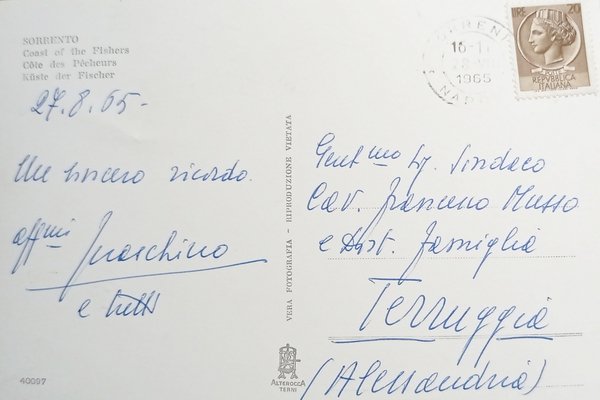 SORRENTO
Coast of the Fishers
Côte des Pêcheurs
Küste der Fischer
27.8.65-
Un sincero ricordo.
affmi
e tutti
40097
VERA FOTOGRAFIA - RIPRODUZIONE VIETATA
ALTEROCCA
TERNI
1965
LIRE 20
REPVBBLICA
ITALIANA
Gent mo Sig. Sindaco
Cav. Francesco Musso
e Dist. famiglia
Terruggia
(Alessandria)